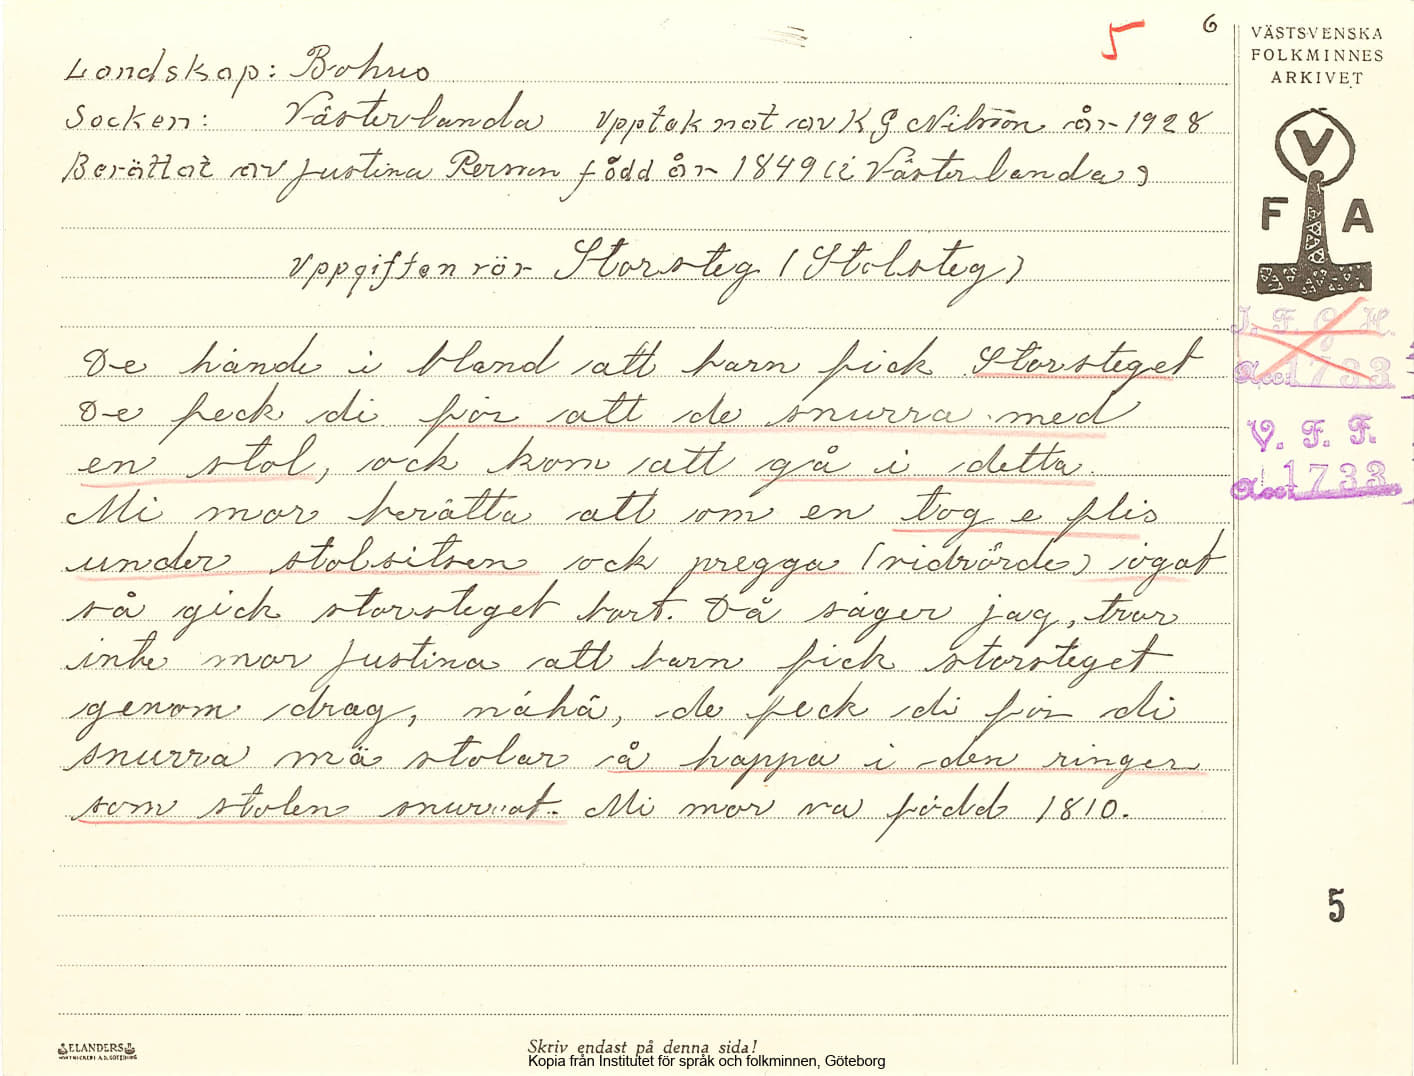 6
5
VÄSTSVENSKA
FOLKMINNES
ARKIVET
Landskap: Bohus
Socken: Västerlanda Upptaknat av K G Nilsson år 1928
Berättat av Justina Person född år 1849 (i Västerlanda)
V
F A
Uppgiften rör Storsteg (Stolsteg)
I. F. G. H.
Acc. 1733
De hände i bland att barn fick Storsteget
De feck di för att de snurra med
V. F. F.
en stol, ock kom att gå i detta.
Acc. 1733
Mi mor berätta att om en tog e flis
under stolsitsen ock pregga (vidrörde) ögat
så gick storsteget bort. Då säger jag, tror
inte mor Justina att barn fick storsteget
genom drag, nähä, de feck di för di
snurra mä stolar å hoppa i den ringer
som stolen snurrat. Mi mor va född 1810.
5
ELANDERS
Skriv endast på denna sida!
Kopia från Institutet för språk och folkminnen, Göteborg